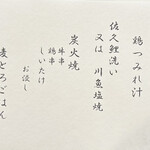 鶏つみれ汁
佐久鯉洗い
又は 川魚塩焼
炭火焼
牛串
鶏串
しいたけ
お漬し
麦とろごはん